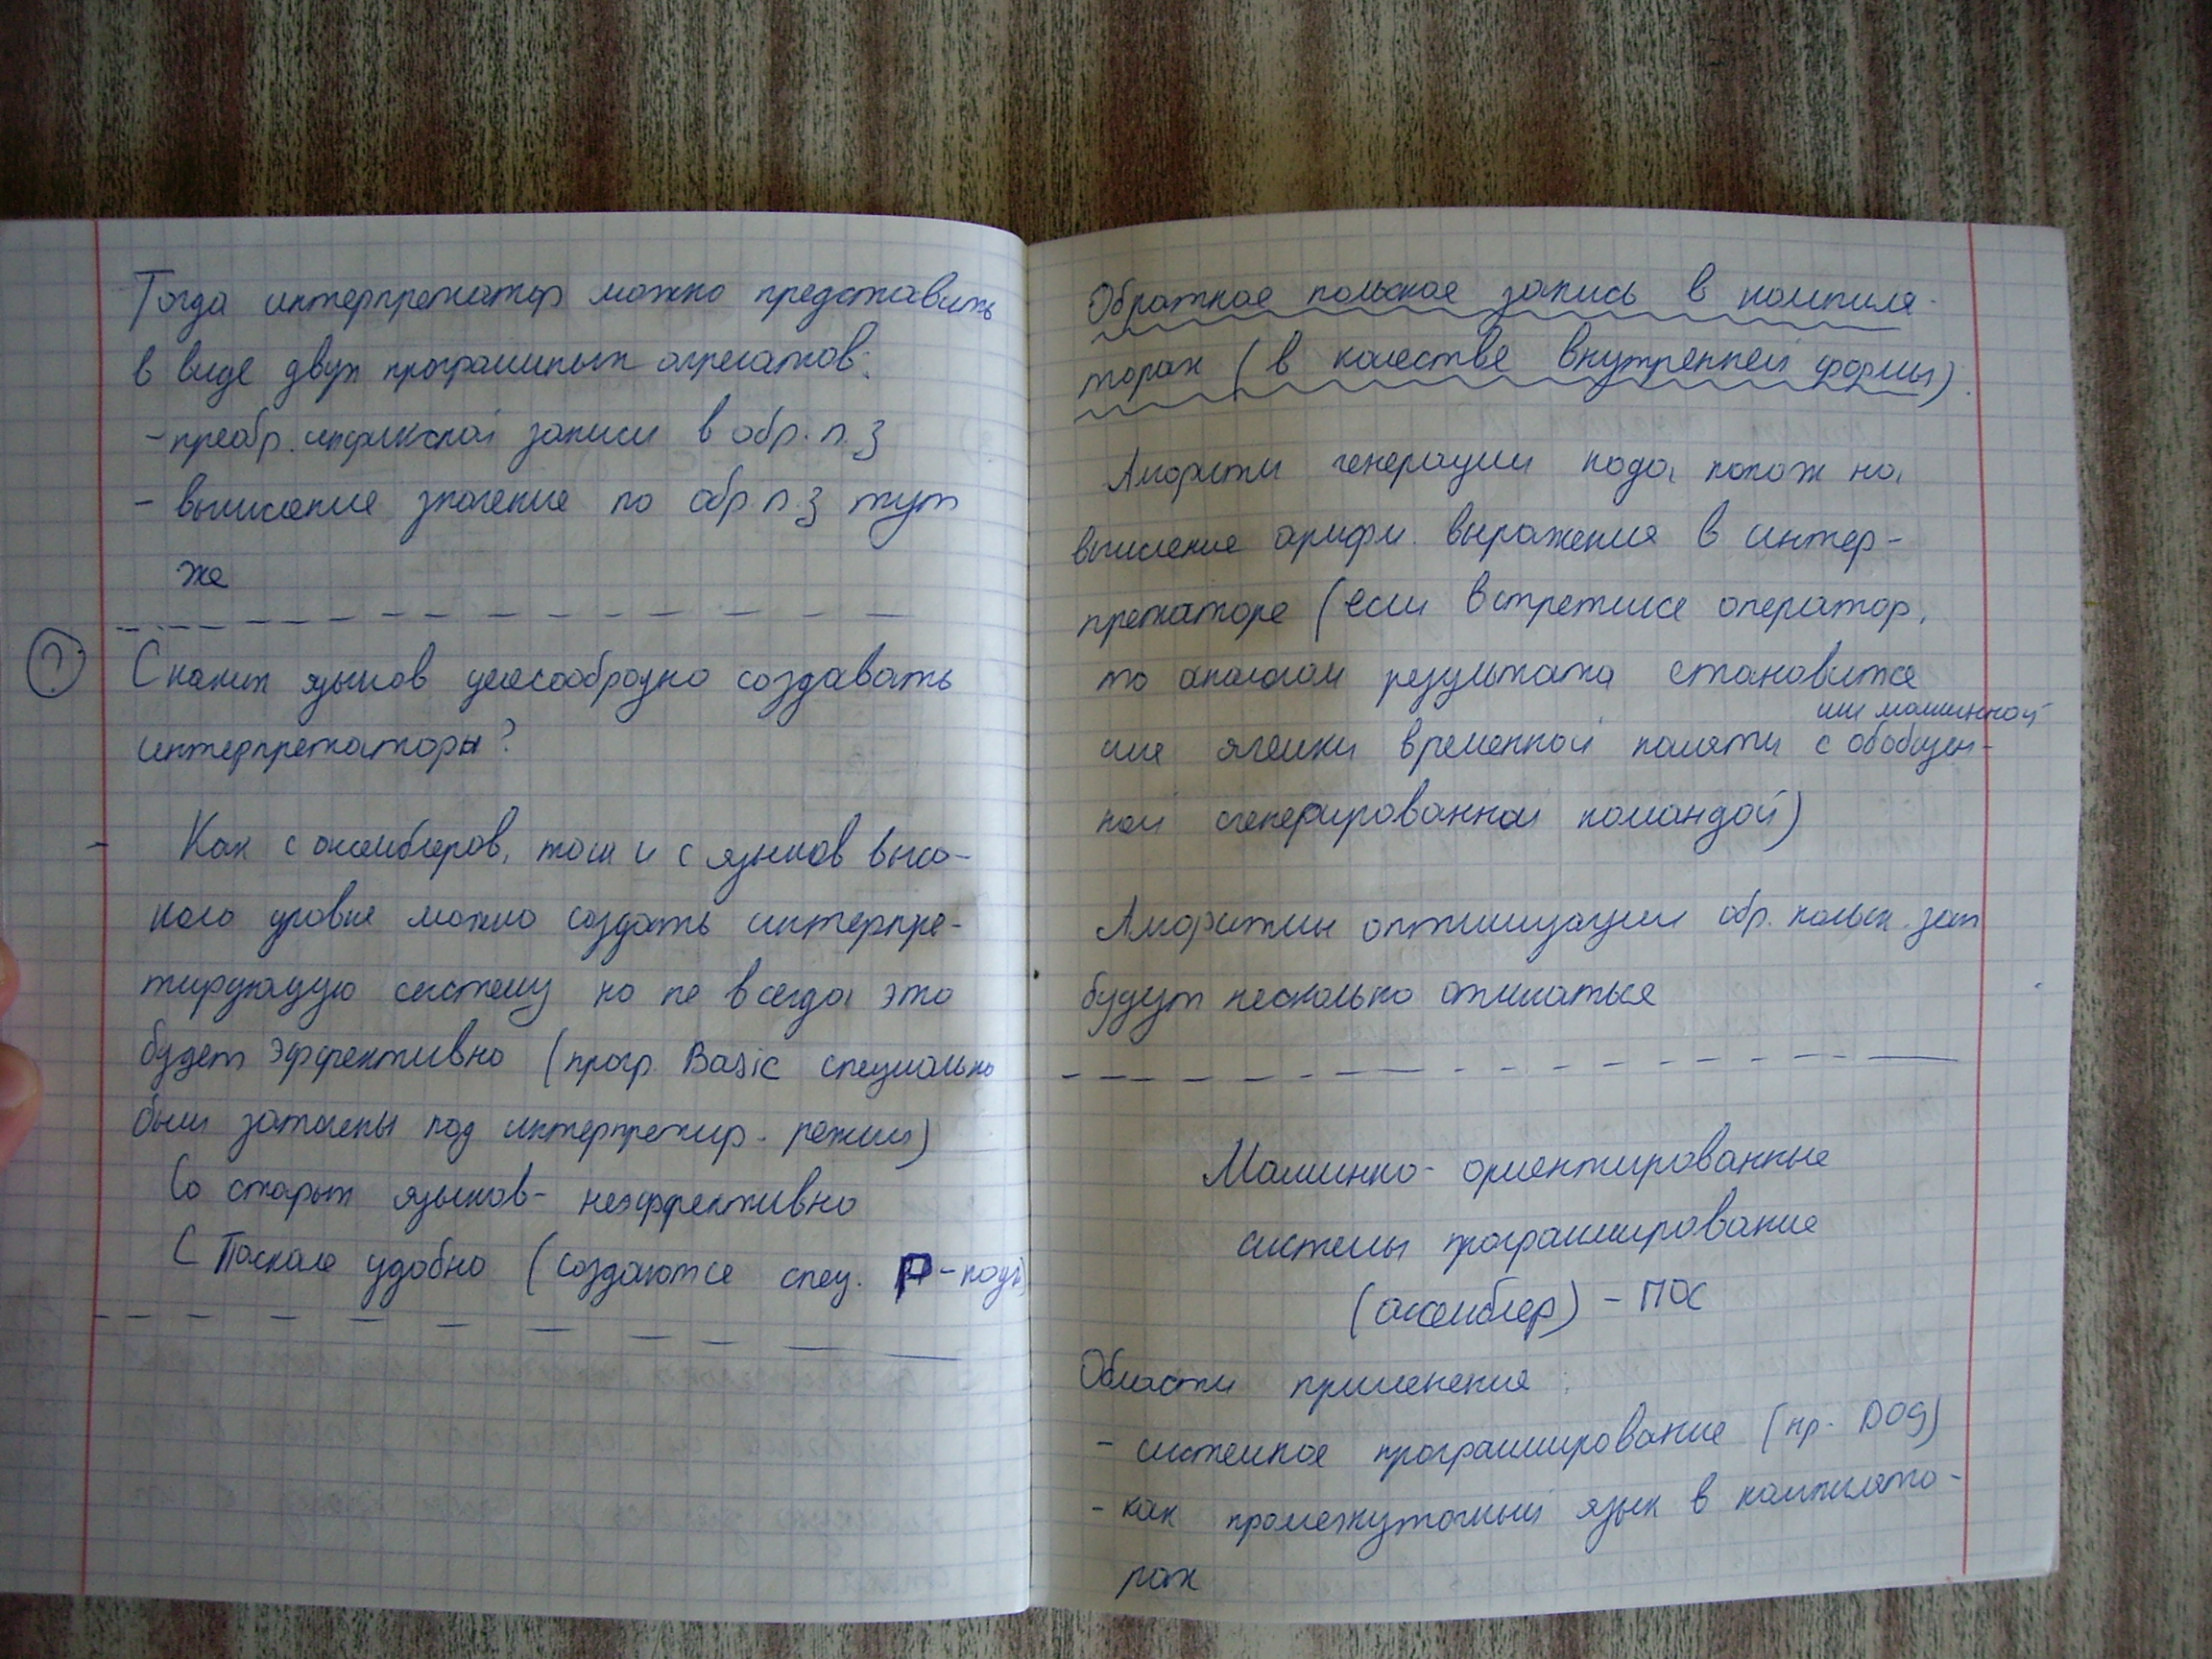 Тогда интерпретатор можно представить
в виде двух программных агрегатов:
- преобр. инфиксной записи в обр. п. з
- вычисление значение по обр п. з тут
же
?
С каких языков целесообразно создавать
интерпретаторы?
- Как с ассемблеров, так и с языков высо-
кого уровня можно создать интерпре-
тирующую систему но не всегда это
будет эффективно (прогр. Basic специально
были заточены под интерпретир. режим)
Со старых языков - неэффективно
С Паскаля удобно (создаются спец. P-коды)
Обратная польская запись в компиля-
торах (в качестве внутренней формы).
Алгоритм генерации кода похож на
вычисление арифм. выражения в интер-
претаторе (если встретился оператор,
то аналогом результата становится
или машинной
имя ячейки временной памяти с обобщен-
ной сгенерированной командой)
Алгоритмы оптимизации обр. польск. зап
будут несколько отличаться
Машинно-ориентированные
системы программирования
(ассемблер) - МОС
Области применения:
- системное программирование (пр. DOS)
- как промежуточный язык в компилято-
рах